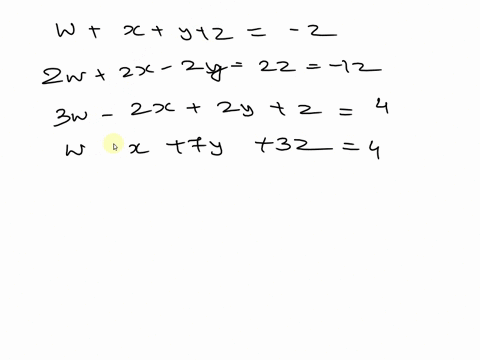 w + x + y + z = -2
2w + 2x - 2y = 2z = -12
3w - 2x + 2y + z = 4
w x + 7y + 3z = 4